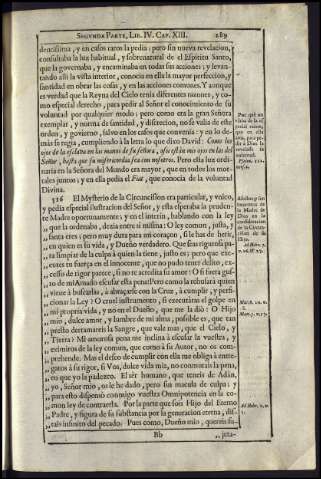 SEGUNDA PARTE, LIB. IV. CAP. XIII. 289
dentissima, y en casos raros la pedia: pero sin nueva revelacion,
consultaba la luz habitual, y sobrenatural de el Espiritu Santo,
que la governaba, y encaminaba en todas sus acciones; y levan-
tando alli la vista interior, conocia en ella la mayor perfeccion, y
santidad en obrar las cosas, y en las acciones comunes. Y aunque
es verdad que la Reyna del Cielo tenia diferentes razones, y co-
mo especial derecho, para pedir al Señor el conocimiento de su
voluntad por qualquier modo; pero como era la gran Señora
exemplar, y norma de santidad, y discrecion, no se valia de este
orden, y govierno, salvo en los casos que convenia: y en lo de-
más se regia, cumpliendo à la letra lo que dixo David: Como los
ojos de la esclava en las manos de su señora, assi están mis ojos en los del
Señor, hasta que su misericordia sea con nosotros. Pero esta luz ordi-
naria en la Señora del Mundo era mayor, que en todos los mor-
tales juntos; y en ella pedia el Fiat, que conocia de la voluntad
Divina.
516 El Mysterio de la Circuncision era particular, y unico,
y pedia especial ilustracion del Señor, y esta esperaba la pruden-
te Madre oportunamente; y en el interin, hablando con la ley
que la ordenaba, decia entre si misma: O ley comun, justa, y
,, santa eres; pero muy dura para mi coraçon, si le has de herir,
,, en quien es su vida, y Dueño verdadero. Que seas rigurosa pa-
,, ra limpiar de la culpa à quien la tiene, justo es; pero que exe-
,, cutes tu fuerça en el innocente, que no pudo tener delito, ex-
,, cesso de rigor parece, si no te acredita su amor: O si fuera gus-
,, to de mi Amado escusar esta pena! Pero como la rehusará quien
,, viene à buscarlas, à abraçarse con la Cruz, à cumplir, y perfi-
,, cionar la Ley? O cruel instrumento, si executáras el golpe en
,, mi propria vida, y no en el Dueño, que me la diò: O Hijo
,, mio, dulce amor, y lumbre de mi alma, possible es, que tan
,, presto derrameis la Sangre, que vale mas, que el Cielo, y
,, Tierra? Mi amorosa pena me inclina à escusar la vuestra, y
,, eximiros de la ley comun, que como à su Autor, no os com-
,, prehende. Mas el deseo de cumplir con ella me obliga à entre-
,, garos à su rigor, si Vos, dulce vida mia, no conmutais la pena,
,, en que yo la padezca. El sér humano, que teneis de Adan,
,, yo, Señor mio, os le he dado, pero sin macula de culpa; y
,, para esto dispensò conmigo vuestra Omnipotencia en la co-
,, mun ley de contraerla. Por la parte que sois Hijo del Eterno
,, Padre, y figura de su substancia por la generacion eterna, dis-
,, tais infinito del pecado: Pues como, Dueño mio, quereis su-
Bb ,, jeta-